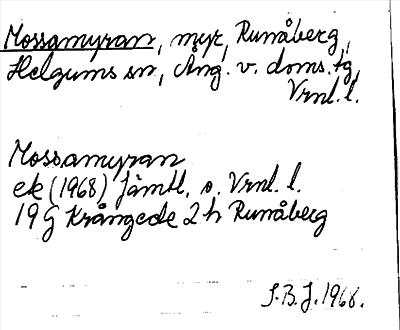 Mossamyran, myr, Runåberg,
Helgums sn, Ång. v. doms.tg,
Vrnl. l.
Mossamyran
ek (1968) Jämtl. o. Vrnl. l.
19 G Krångede 2 h Runåberg
S.B.J. 1968.